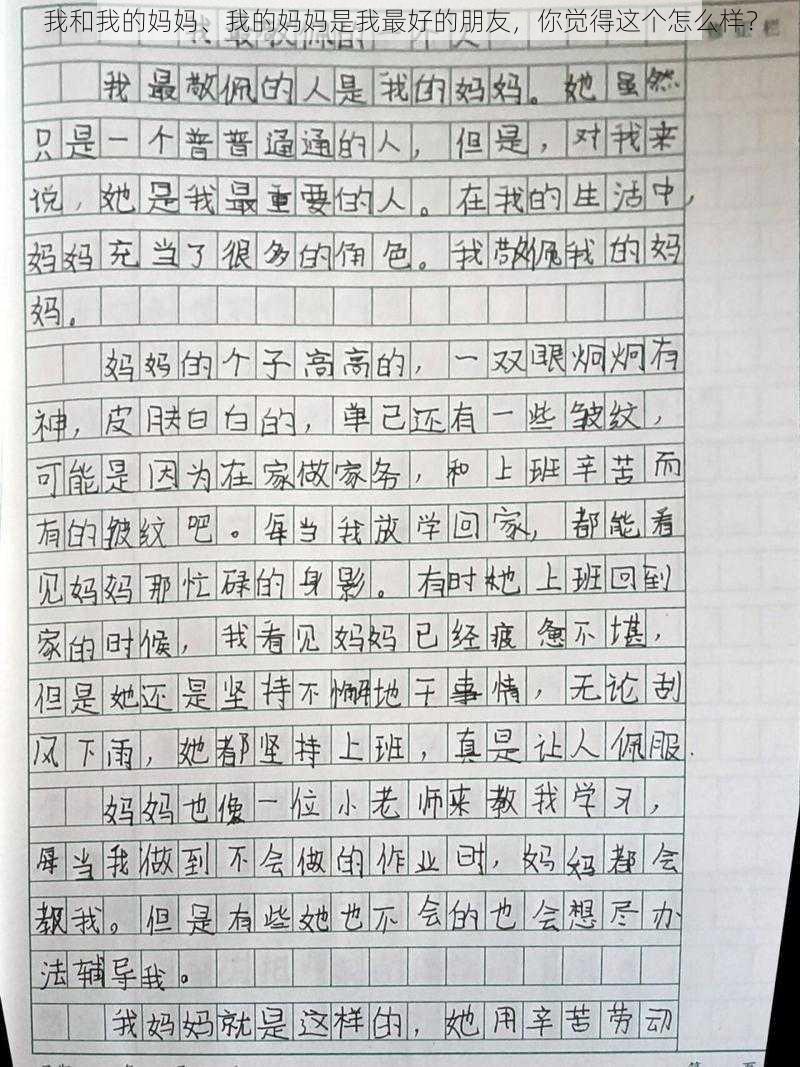 我和我的妈妈、我的妈妈是我最好的朋友，你觉得这个怎么样？
我最敬佩的一个人
我最敬佩的人是我的妈妈。她虽然
只是一个普普通通的人，但是，对我来
说，她是我最重要的人。在我的生活中，
妈妈充当了很多的角色。我敬佩我的妈
妈。
妈妈的个子高高的，一双眼炯炯有
神，皮肤白白的，单已还有一些皱纹，
可能是因为在家做家务，和上班辛苦而
有的皱纹吧。每当我放学回家，都能看
见妈妈那忙碌的身影。有时她上班回到
家的时候，我看见妈妈已经疲惫不堪，
但是她还是坚持不懈地干事情，无论刮
风下雨，她都坚持上班，真是让人佩服.
妈妈也像一位小老师来教我学习，
每当我做到不会做的作业时，妈妈都会
教我。但是有些她也不会的也会想尽办
法辅导我。
我妈妈就是这样的，她用辛苦劳动